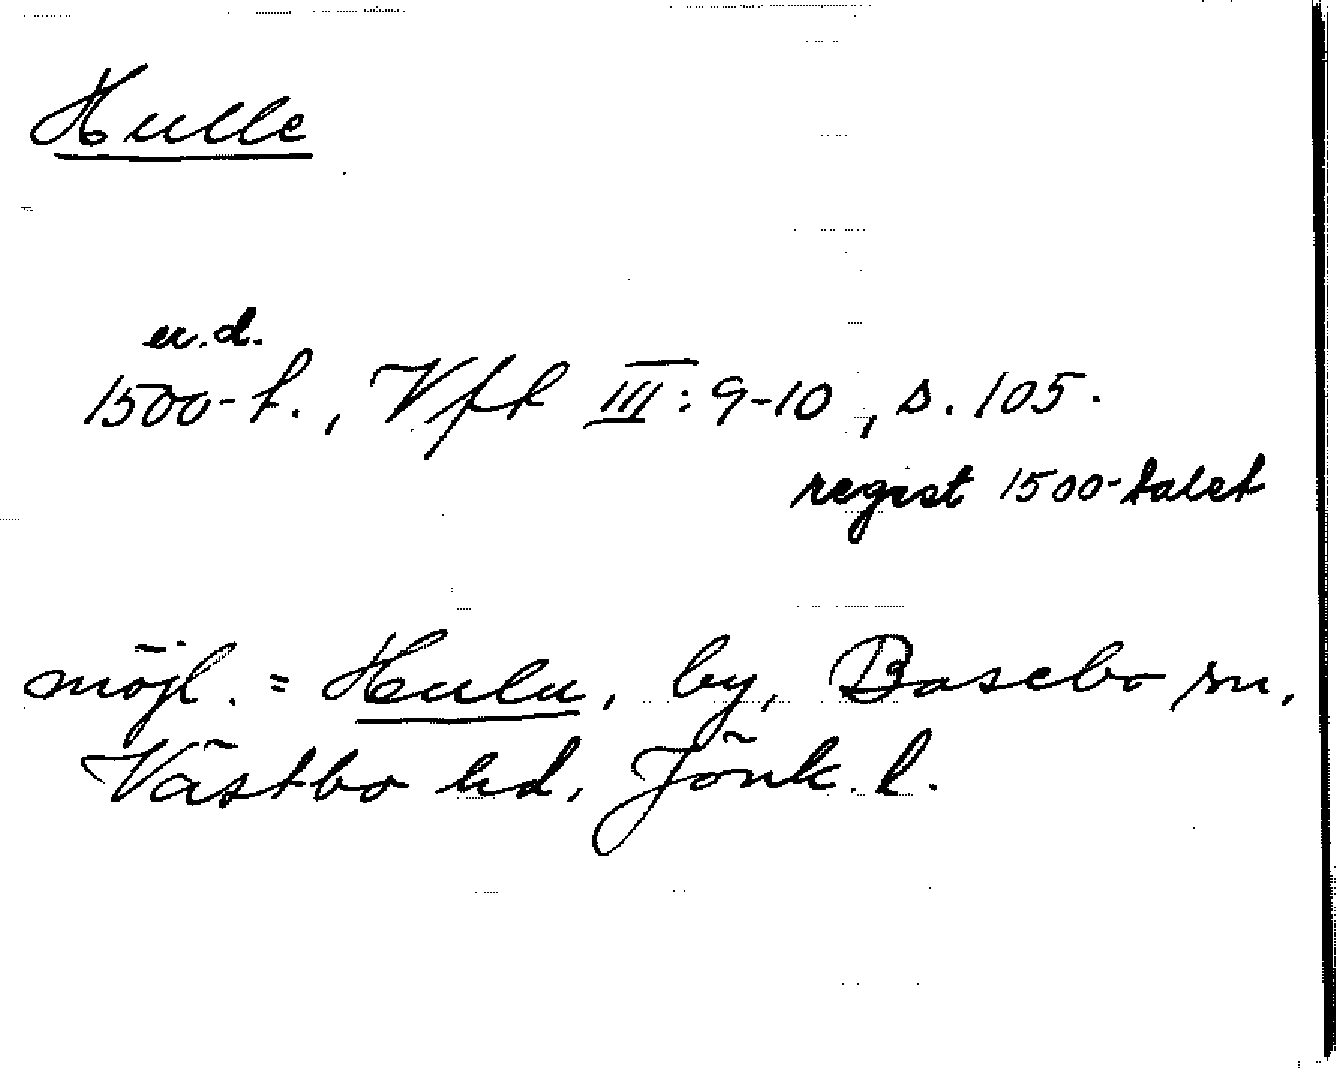 Hulle
u.d.
1500-t., Vfk III: 9-10, s. 105.
regist 1500-talet
möjl. = Hulu, by, Bosebo sn,
Västbo hd, Jönk. l.